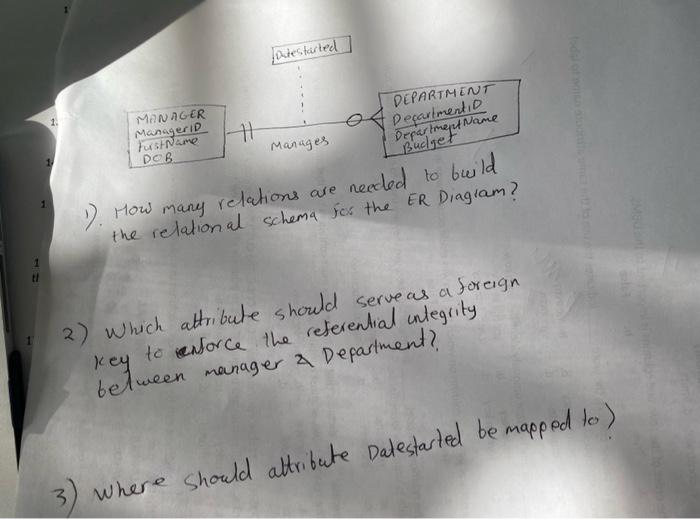 Datestarted
MANAGER
ManagerID
FirstName
DOB
Manages
DEPARTMENT
DepartmentID
DepartmentName
Budget
1). How many relations are needed to build
the relational schema for the ER Diagram?
2) Which attribute should serve as a foreign
key to enforce the referential integrity
between manager & Department?
3) Where should attribute Datestarted be mapped to?